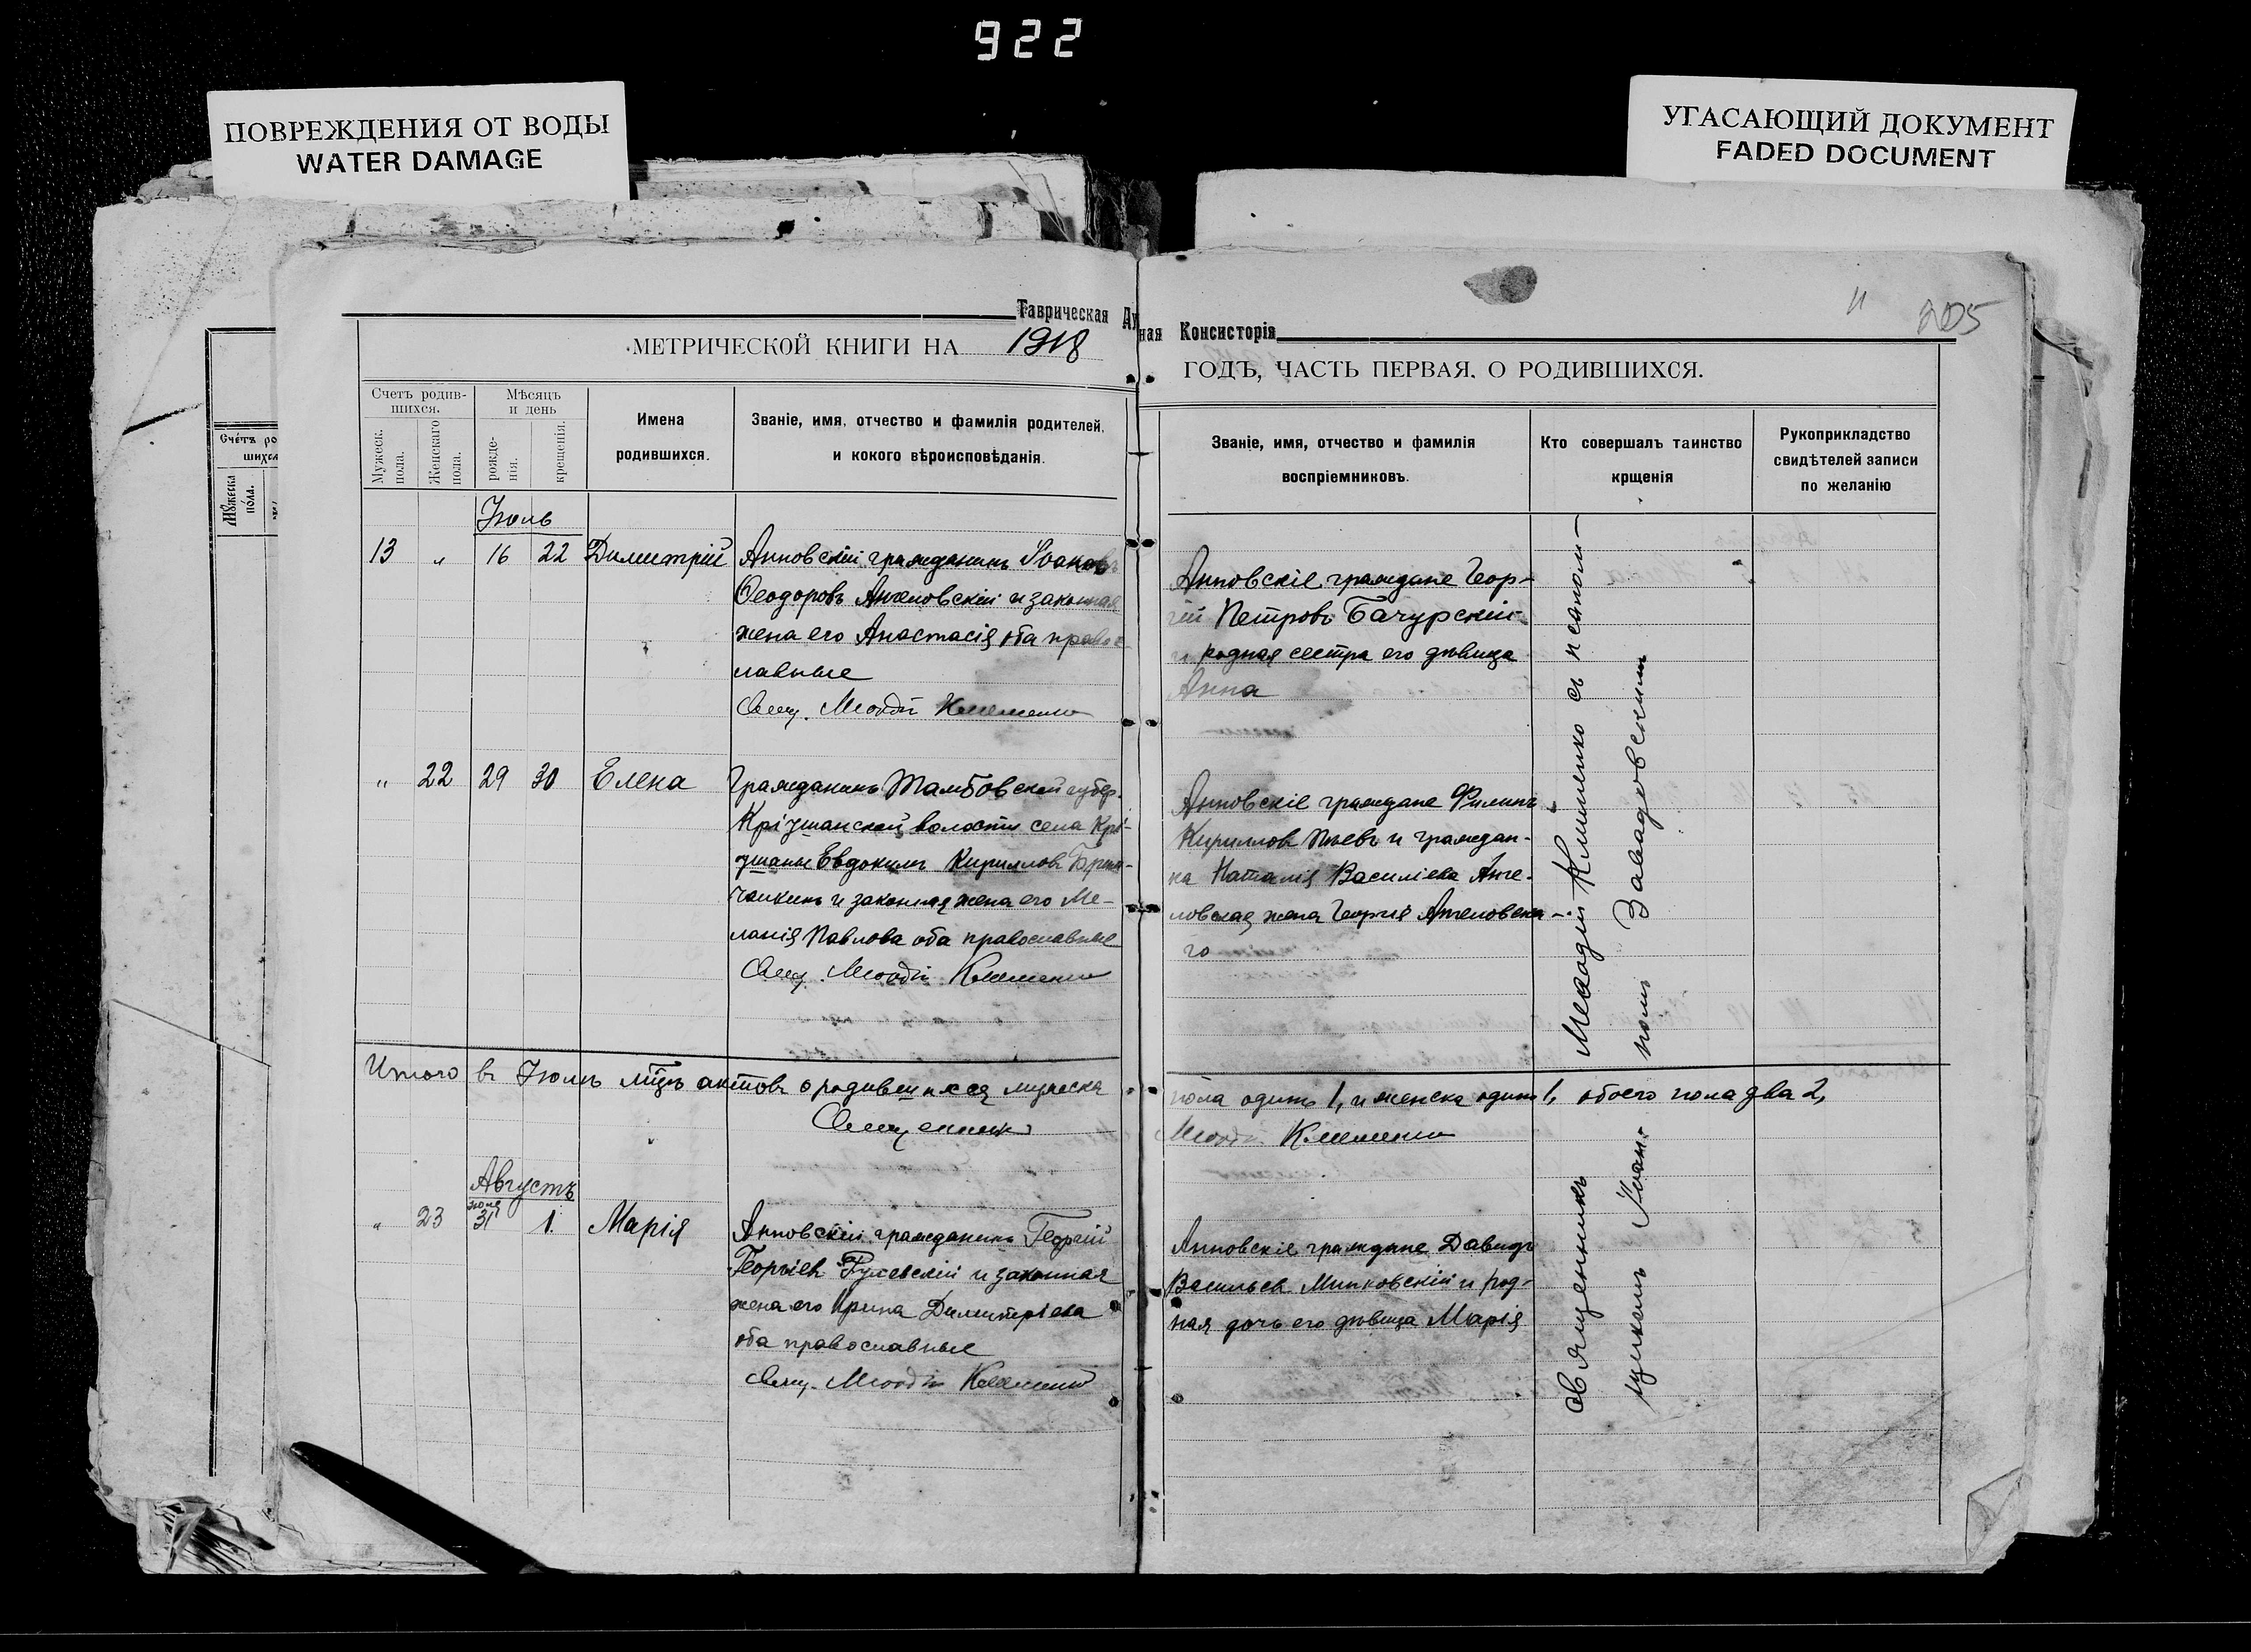 922
ПОВРЕЖДЕНИЯ ОТ ВОДЫ
WATER DAMAGE
УГАСАЮЩИЙ ДОКУМЕНТ
FADED DOCUMENT
11 205
Таврическая Ду
ная Консисторія
МЕТРИЧЕСКОЙ КНИГИ НА 1918
ГОДЪ, ЧАСТЬ ПЕРВАЯ. О РОДИВШИХСЯ.
Счетъ родив-
шихся.
Мужеск.
пола.
Женскаго
пола.
Мѣсяцъ
и день
рожде-
нія.
крещенія.
Имена
родившихся.
Званіе, имя, отчество и фамилія родителей,
и кокого вѣроисповѣданія.
Званіе, имя, отчество и фамилія
воспріемниковъ.
Кто совершалъ таинство
крщенія
Рукоприкладство
свидѣтелей записи
по желанію
Счетъ ро
шихся
Мужеска
пола.
Іюль
13 „ 16 22 Димитрій
Анновскій гражданинъ Іоаннъ
Ѳеодоровъ Ангеловскій и законная
жена его Анастасія оба правос
лавные
Свящ. Меѳодій Клименко
Анновскіе граждане Геор-
гій Петровъ Бачурскій
и родная сестра его дѣвица
Анна
„ 22 29 30 Елена
Гражданинъ Тамбовской губер.
волости села Крі-
ушаны Евдокимъ Кирилловъ
и законная жена его Ме-
ланія Павлова оба православные
Свящ. Меѳодій Клименко
Анновскіе граждане Филипъ
Кирилловъ и граждан-
ка Наталія Василіева Анге-
ловская жена Георгія Ангеловска-
го
Итого въ Іюлѣ мцѣ актовъ о родившихся мужеска
пола одинъ 1, и женска одинъ 1, обоего пола два 2,
Священникъ
Меѳодій Клименко
Августъ
„ 23 31 1. Марія
Анновскій гражданинъ Георгій
Георгіевъ и законная
жена его Ирина Димитріева
оба православные
Свящ. Меѳодій Клименко
Анновскіе граждане Давидъ
Васильевъ Минковскій и род-
ная дочь его дѣвица Марія
священникъ Меѳодій Клименко съ псалом-
щикомъ Іоан- номъ Завадовскимъ